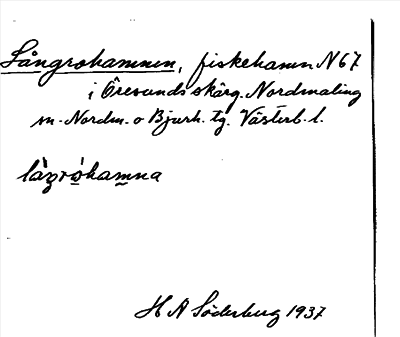 Långrohamnen, fiskehamn N 67
i Öresunds skärg. Nordmaling
sn. Nordm. o Bjurh. tg. Västerb. l.
H A Söderberg 1937